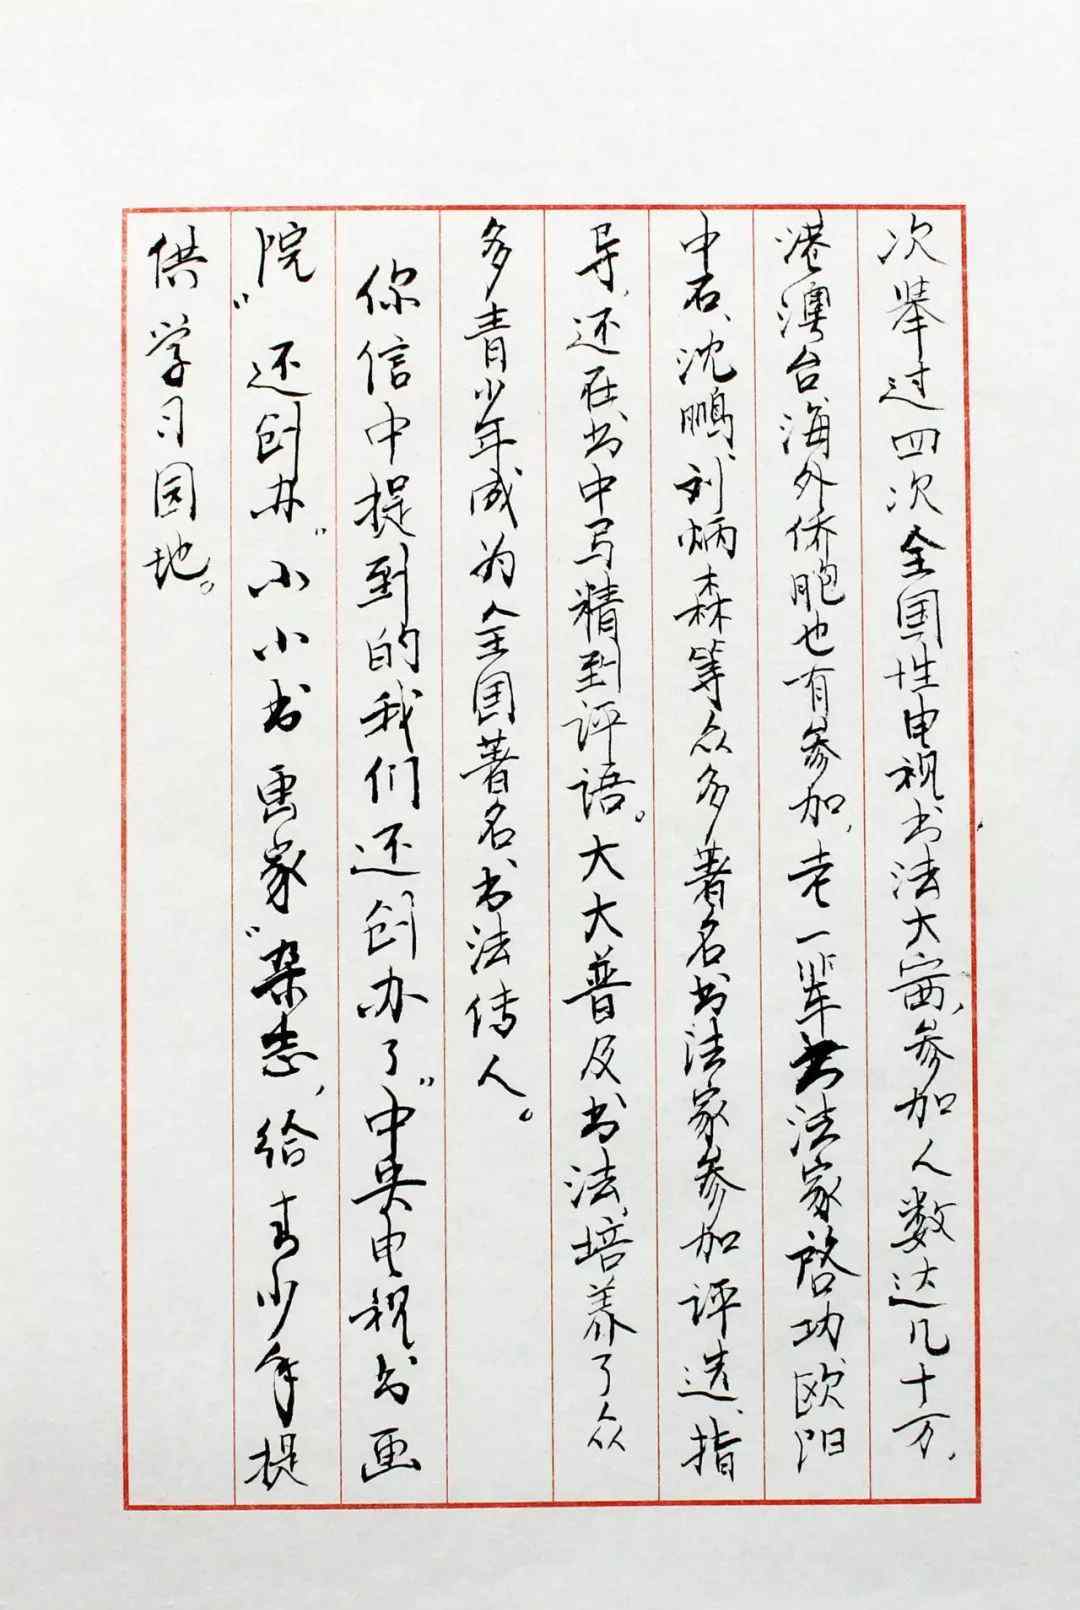 次举过四次全国性电视书法大赛,参加人数达几十万,
港澳台海外侨胞也有参加,老一辈书法家启功、欧阳
中石、沈鹏、刘炳森等众多著名书法家参加评选、指
导,还在书中写精到评语。大大普及书法,培养了众
多青少年成为全国著名书法传人。
你信中提到的我们还创办了“中央电视书画
院”还创办“小小书画家”杂志,给青少年提
供学习园地。